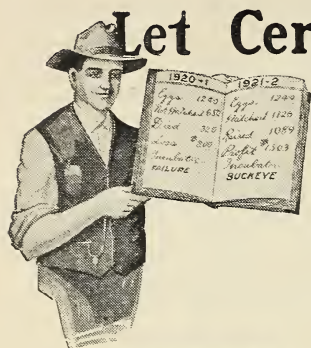 Let Cer
1920-1
Eggs. 1240
Not Hatched 650
Died 320
Loss $200
Incubator
FAILURE
1921-2
Eggs. 1244
Hatched 1126
Raised 1089
Profit $1503
Incubator
BUCKEYE